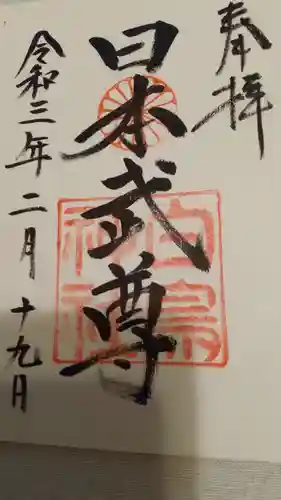 奉拝
日本武尊
白鳥神社
令和三年二月十九日